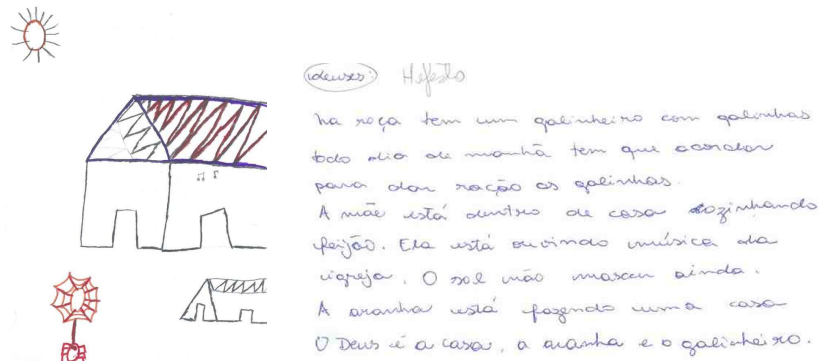 (deuses:) Hefesto
na roça tem um galinheiro com galinhas
todo dia de manhã tem que acordar
para dar ração as galinhas.
A mãe está dentro de casa cozinhando
feijão. Ela está ouvindo música da
igreja. O sol não nasceu ainda.
A aranha está fazendo uma casa
O Deus é a casa, a aranha e o galinheiro.